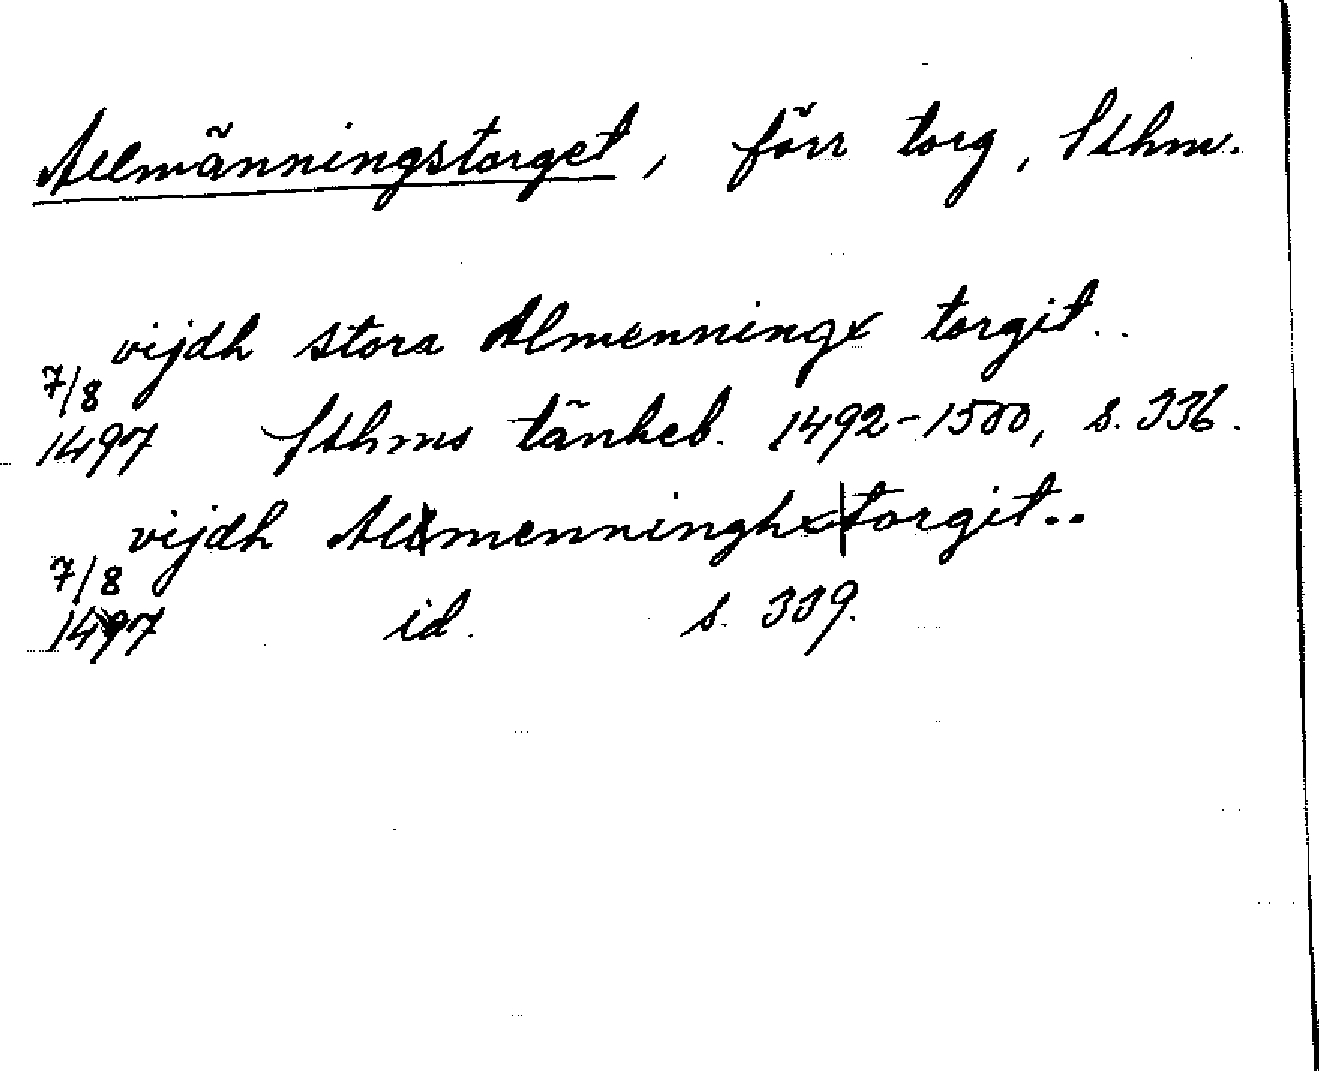 Allmänningstorget, förr torg, Sthm.
vijdh stora Almenningx torgit..
7/8 1497 Sthms tänkeb. 1492-1500, s. 336.
vijdh Almenninghx torgit..
7/8 1497 id. s. 339.